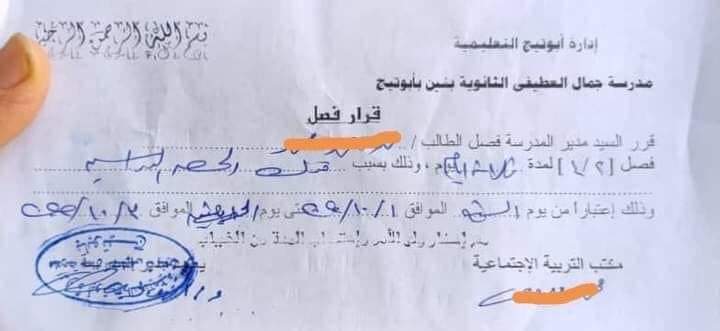 بسم الله الرحمن الرحيم
إدارة أبوتيج التعليمية
مدرسة جمال العطيفى الثانوية بنين بأبوتيج
قرار فصل
قرر السيد مدير المدرسة فصل الطالب /
فصل [ ٤/٢ ] لمدة ثلاثة أيام ، وذلك بسبب ترك الحصص الدراسية
وذلك إعتباراً من يوم السبت الموافق ١٠/١ حتى يوم الموافق ١٠/٣
مع إستدعاء ولى الأمر وإحتساب المدة من الغياب
مكتب التربية الإجتماعية